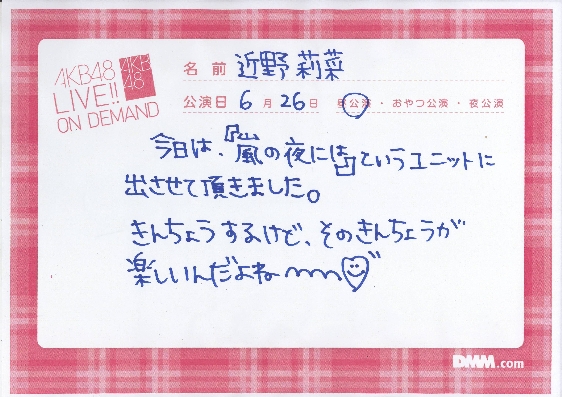 AKB48
LIVE!!
ON DEMAND
AKB
48
名前 近野 莉菜
公演日 6月26日 昼公演・おやつ公演・夜公演
今日は、『嵐の夜には』というユニットに
出させて頂きました。
きんちょうするけど、そのきんちょうが
楽しいんだよね〜〜
DMM.com